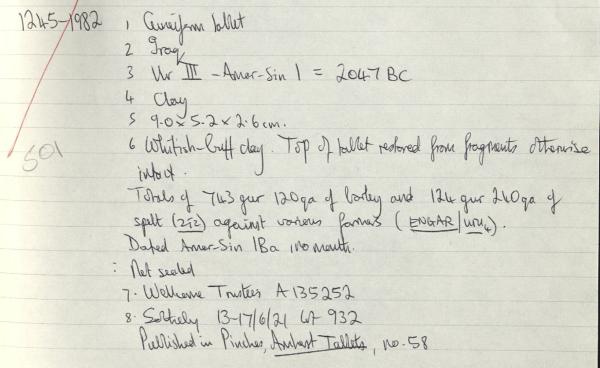 1245-1982 1 Cuneiform tablet
2 Iraq
3 Ur III - Amar-Sin 1 = 2047 BC
4 Clay
5 9.0 x 5.2 x 2.6 cm.
501
6 Whitish-buff clay. Top of tablet restored from fragments otherwise
intact.
Totals of 743 gur 120 qa of barley and 124 gur 240 qa of
spelt (zíz) against various farmers (ENGAR/uru4).
Dated Amar-Sin 1Ba, no month.
: Not sealed
7. Wellcome Trustees A 135252
8. Sotheby 13-17/6/21 Lot 932
Published in Pinches, Amherst Tablets, no. 58